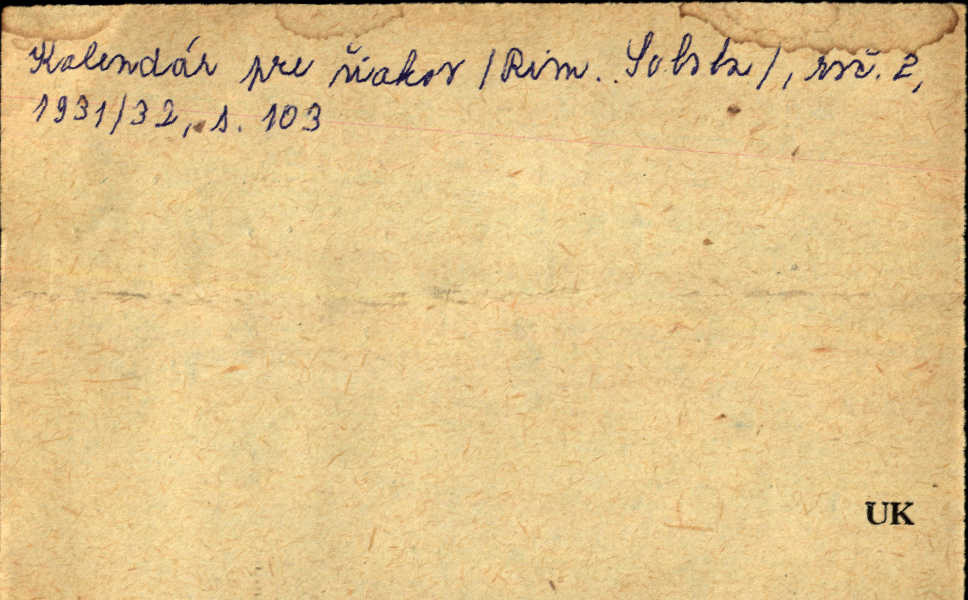 Kalendár pre žiakov /Rim. Sobota/, roč. 2,
1931/32, s. 103
UK